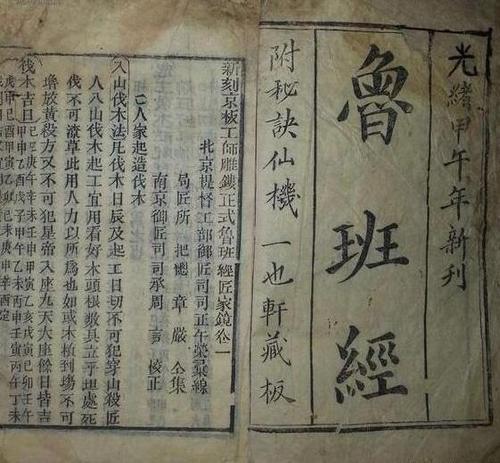 光緒甲午年新刊
魯班經
附秘訣仙機 一也軒藏板
新刻京板工師雕鏤正式魯班經匠家鏡卷一
北京提督工部御匠司司正午榮彙編
局匠所把總章嚴仝集
南京御匠司司承周言校正
人家起造伐木
入山伐木法凡伐木日辰及起工日切不可犯穿山殺匠
人入山伐木起工宜用看好木頭根數具立平坦處斫
伐不可潦草此用人力以所爲也如或木植到塲不可
堆放黃殺方又不可犯皇帝八座九天大座餘日皆吉
伐木吉日己巳庚午辛未壬申甲戌乙亥戊寅己卯壬午